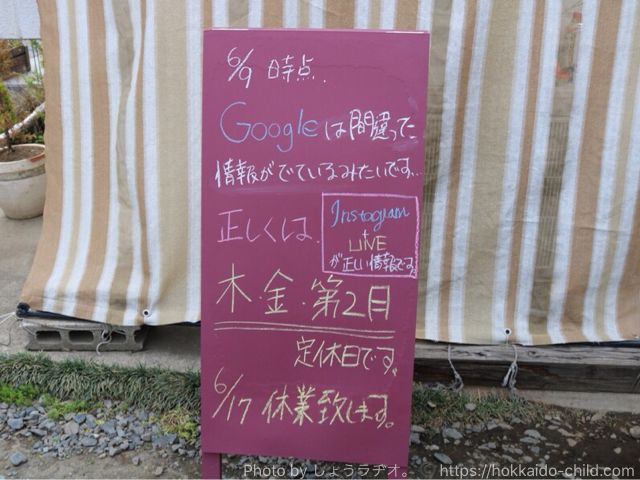 6/9 時点.
Googleは間違った
情報がでているみたいです...
正しくは、
Instagram
+
LINE
が正しい情報です。
木・金・第2月
定休日です。
6/17 休業致します。
Photo by しょうラヂオ。 © https://hokkaido-child.com